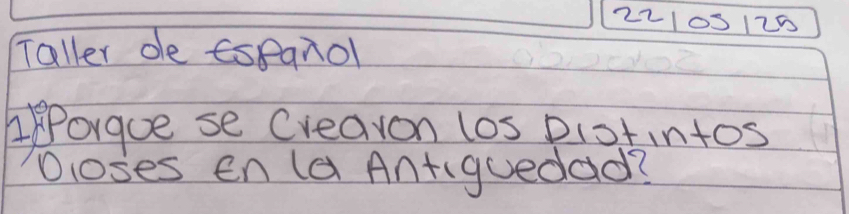 22/05/25
Taller de Español
1) ¿Porque se Crearon los Distintos
Dioses En la Antiguedad?